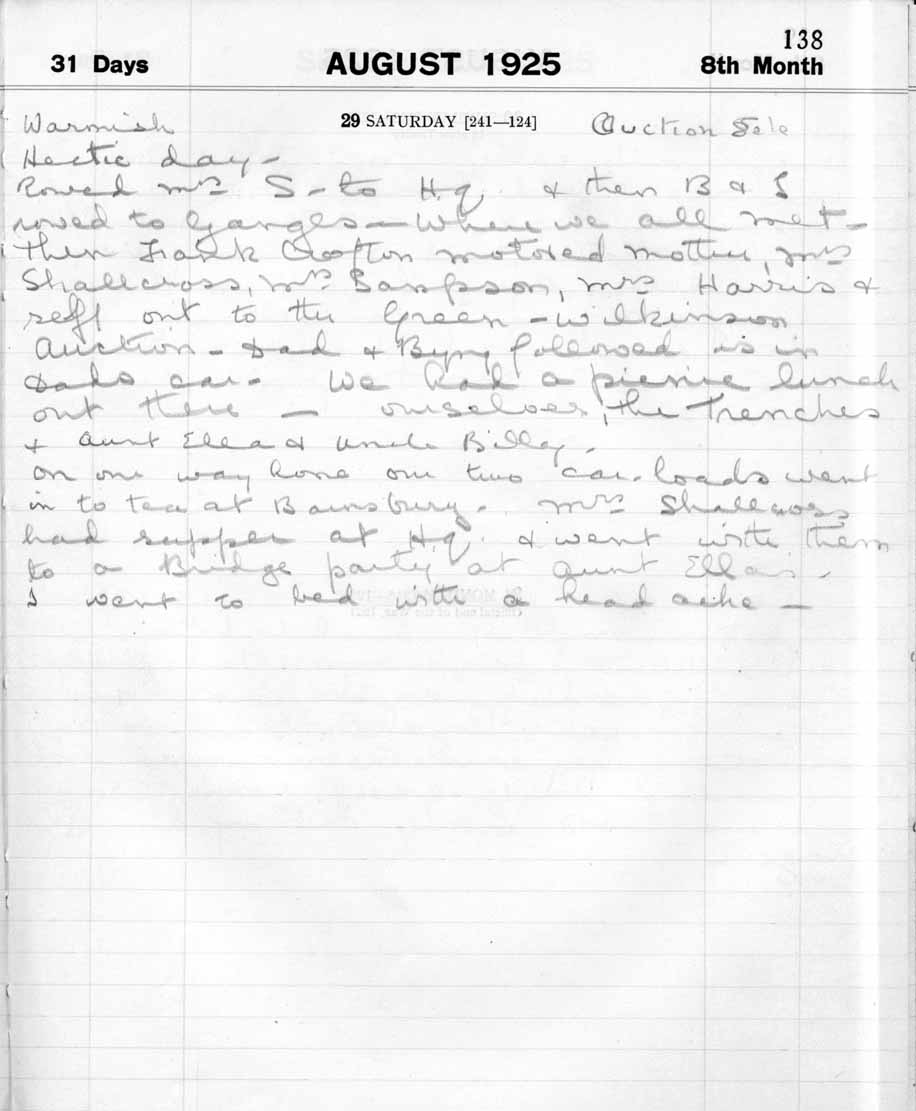 138
31 Days AUGUST 1925 8th Month
Warmish 29 SATURDAY [241—124] Auction Sale
Hectic day -
Rowed Mrs S - to H.q. & then B & I
rowed to Ganges - where we all met -
then Frank Crofton motored mother, Mrs
Shallcross, Mrs Sampson, Mrs Harris &
self out to the Green - Wilkinson
Auction - Dad & Byng followed us in
Dads car. We had a picnic lunch
out there - ourselves, the Trenches
& Aunt Ella & Uncle Billy.
On our way home our two car-loads went
in to tea at Bainsbury. Mrs Shallcross
had supper at H.q. & went with them
to a Bridge party at Aunt Ella's.
I went to bed with a head ache -